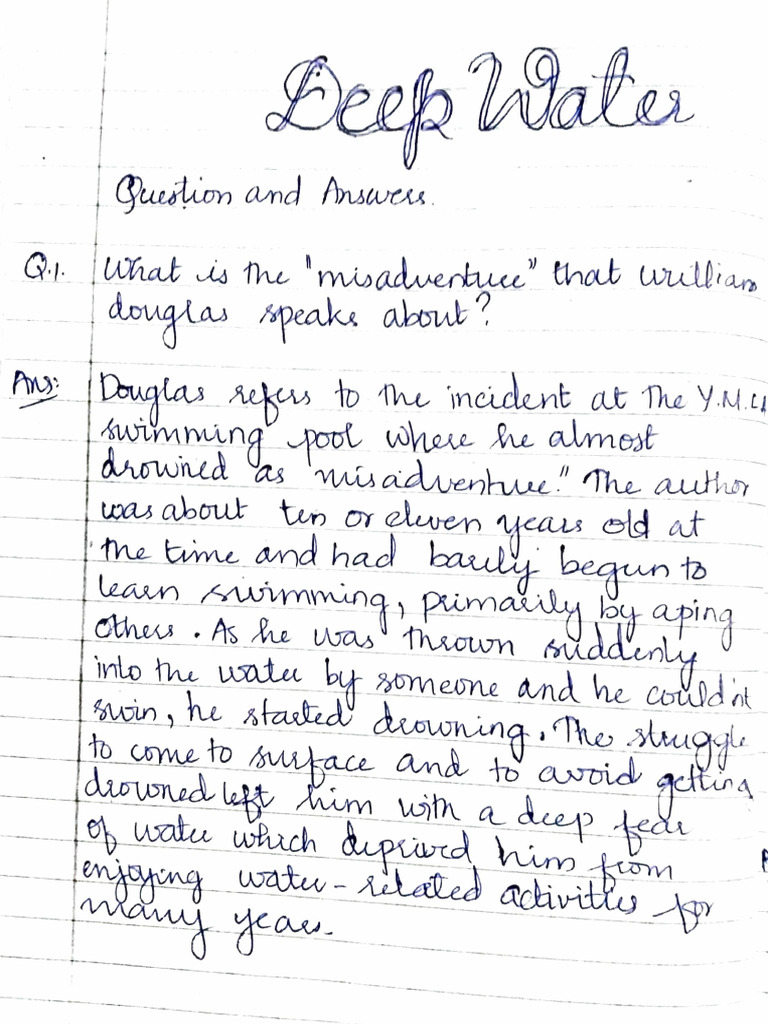 Deep Water
Question and Answers.
Q.1. What is the "misadventure" that william
douglas speaks about?
Ans: Douglas refers to the incident at the Y.M.C.A
swimming pool where he almost
drowned as "misadventure." The author
was about ten or eleven years old at
the time and had barely begun to
learn swimming, primarily by aping
others. As he was thrown suddenly
into the water by someone and he couldn't
swim, he started drowning. The struggle
to come to surface and to avoid getting
drowned left him with a deep fear
of water which deprived him from
enjoying water-related activities for
many years.